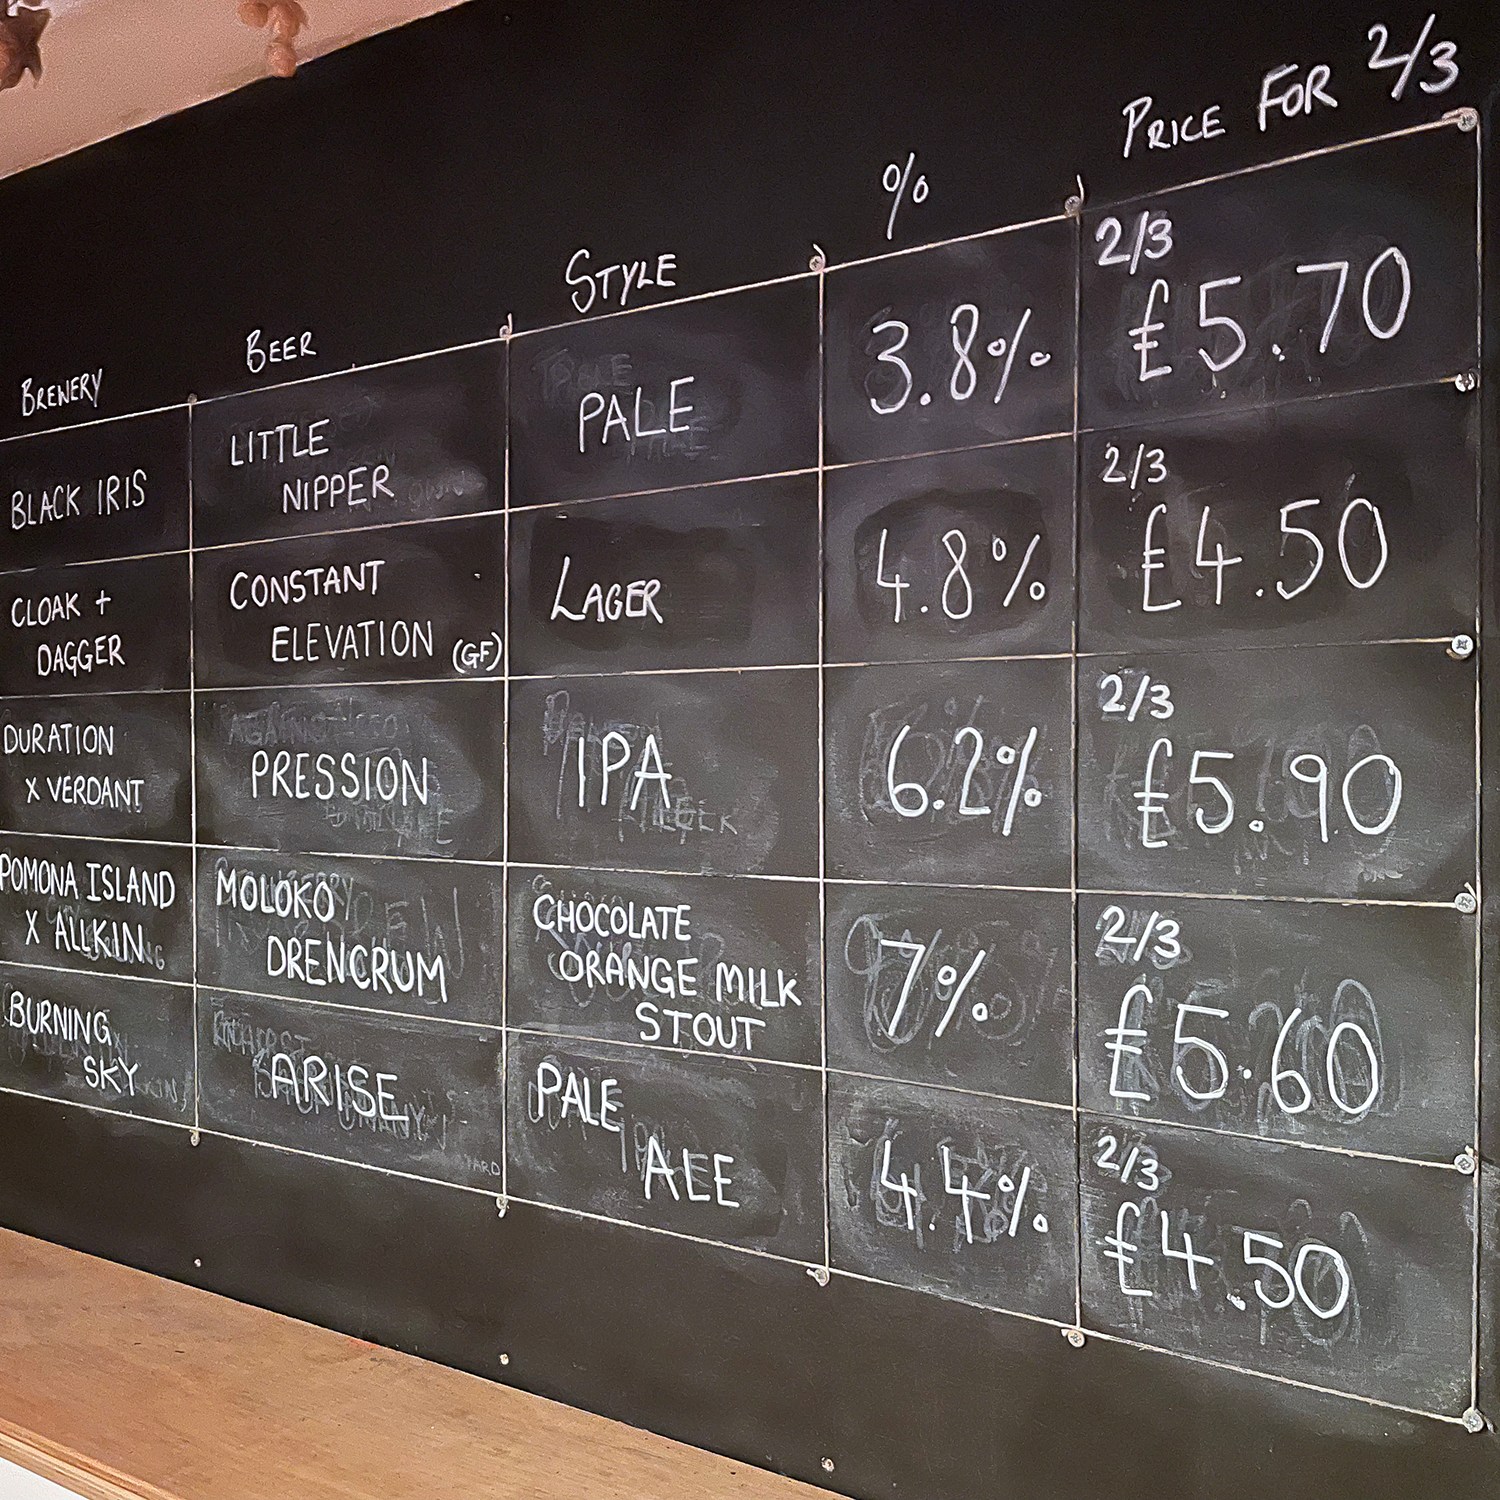 BREWERY BEER STYLE % PRICE FOR 2/3
BLACK IRIS
LITTLE
NIPPER
PALE
3.8%
2/3
£5.70
CLOAK +
DAGGER
CONSTANT
ELEVATION (GF)
LAGER
4.8%
2/3
£4.50
DURATION
X VERDANT
PRESSION
IPA
6.2%
2/3
£5.90
POMONA ISLAND
X ALLKIN
MOLOKO
DRENCRUM
CHOCOLATE
ORANGE MILK
STOUT
7%
2/3
£5.60
BURNING
SKY
ARISE
PALE
ALE
4.4%
2/3
£4.50